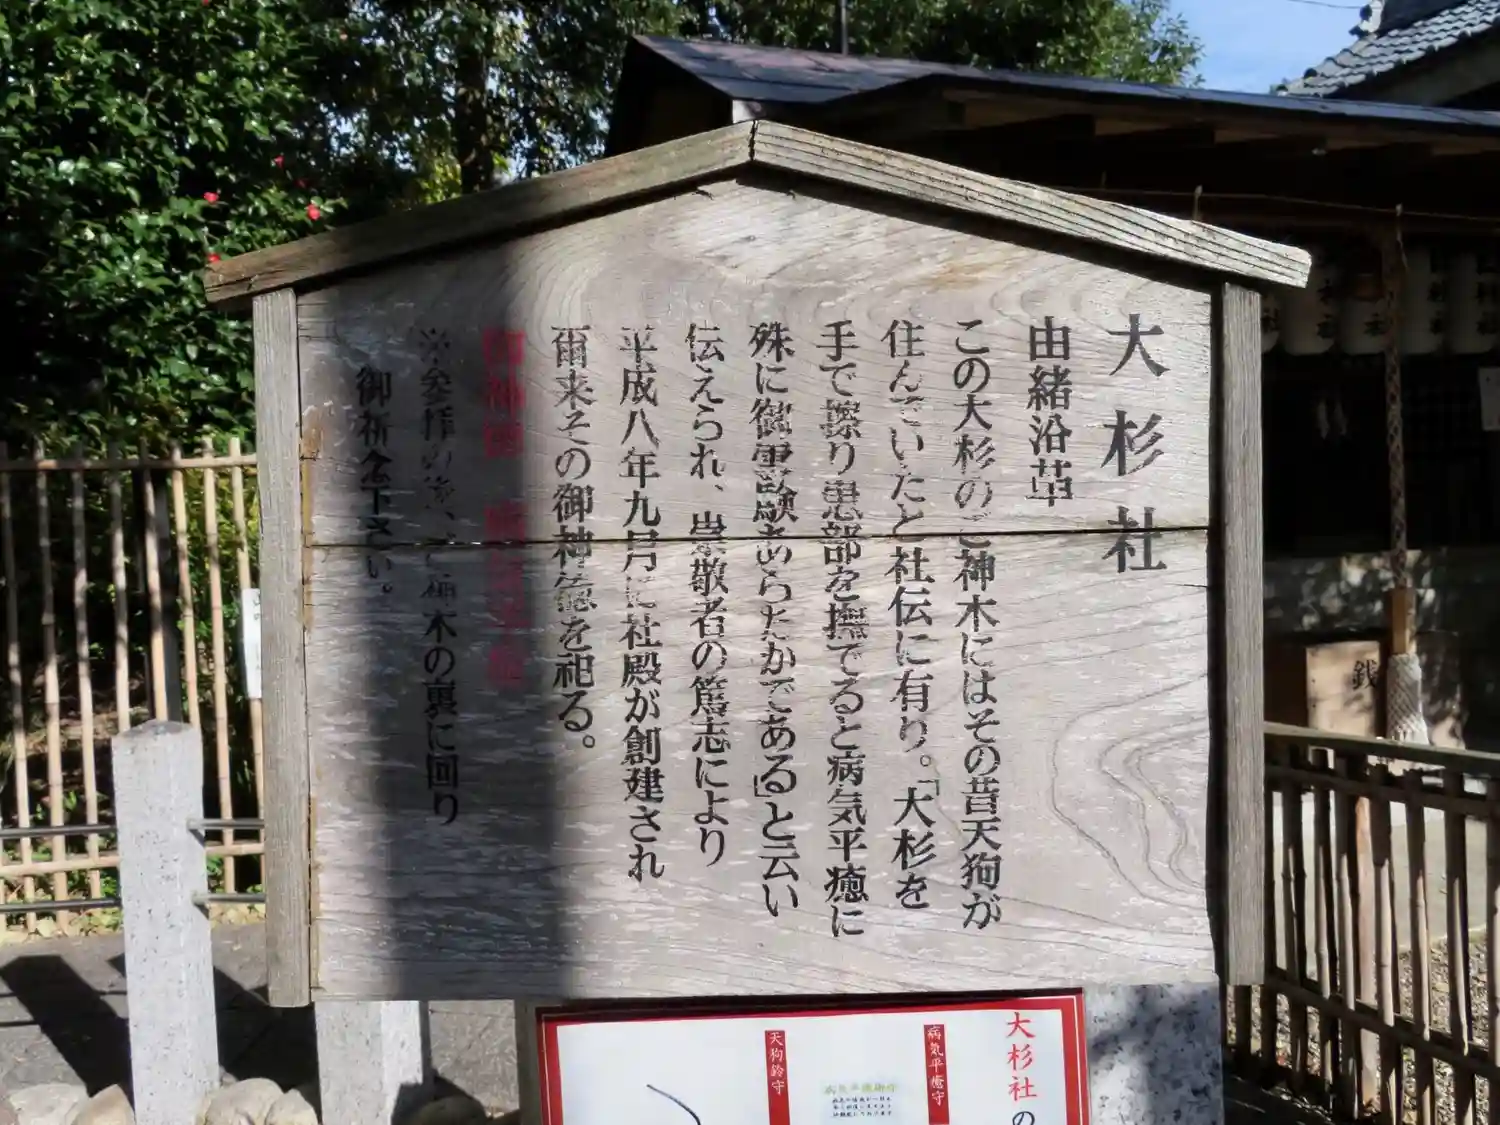 大杉社
由緒沿革
この大杉のご神木にはその昔天狗が
住んでいたと社伝に有り。「大杉を
手で擦り患部を撫でると病気平癒に
殊に御霊験あらたかである」と云い
伝えられ、崇敬者の篤志により
平成八年九月に社殿が創建され
爾来その御神徳を祀る。
御神徳
※参拝の後、ご神木の裏に回り
御祈念下さい。
銭
大杉社の
病気平癒守
天狗鈴守